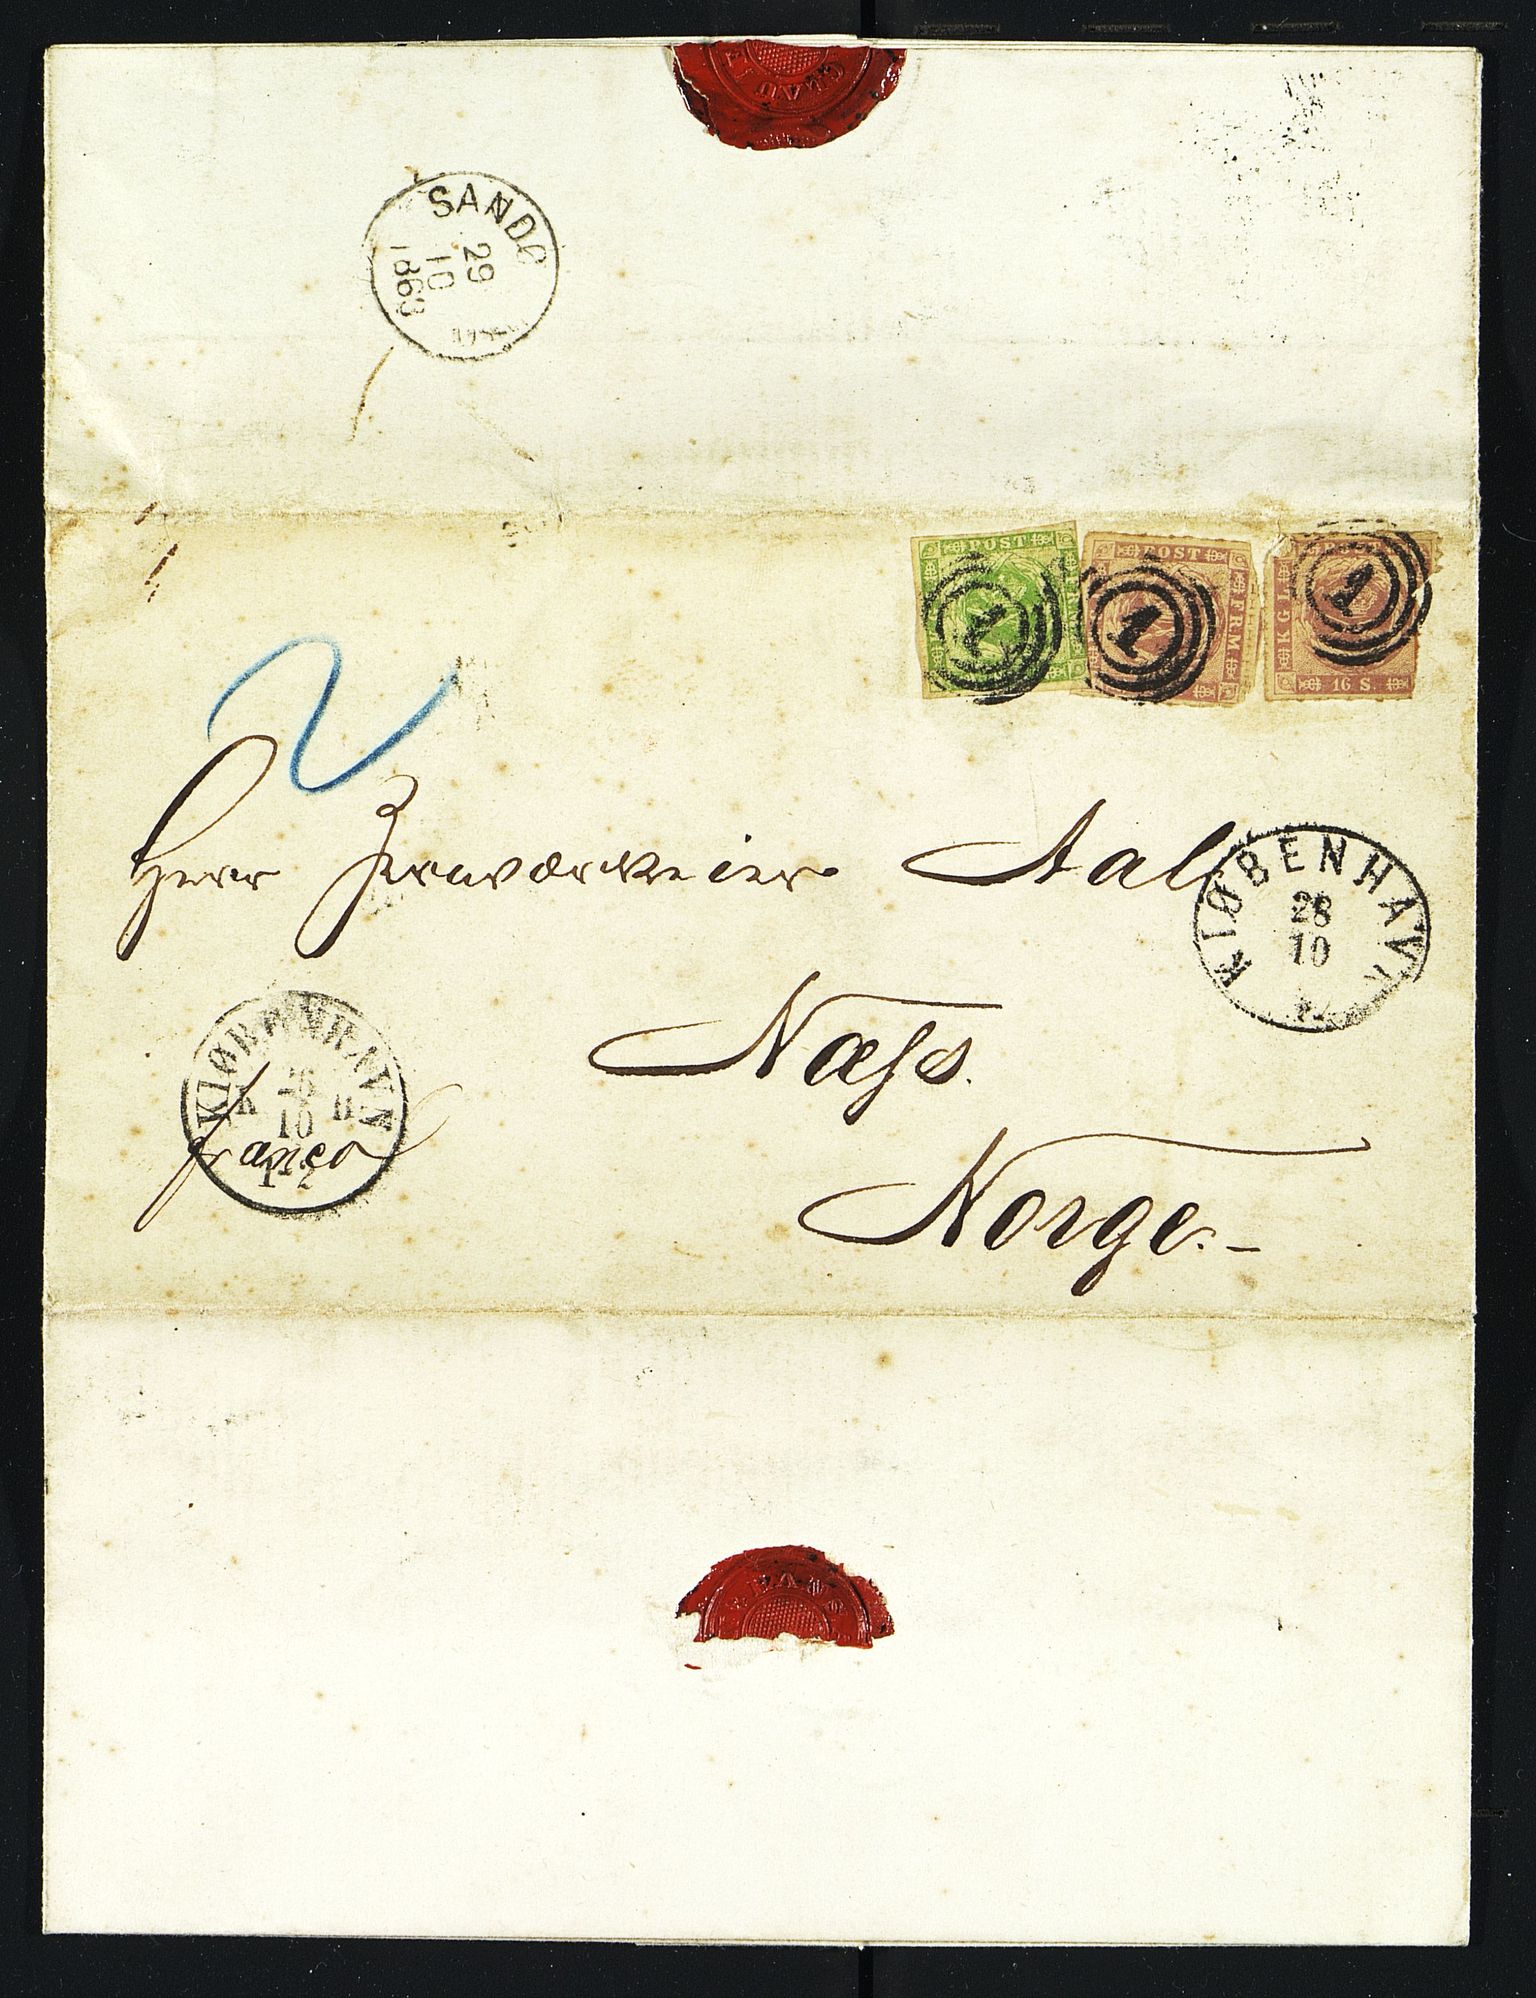 SANDØ
29
10
1863
POST
POST FRM
KGL POST
16 S.
1
1
1
2
Herr Jernværkeier Aall
KIØBENHAVN
28
10
Næss.
KIØBENHAVN
K B
28
10
franco
Norge.-